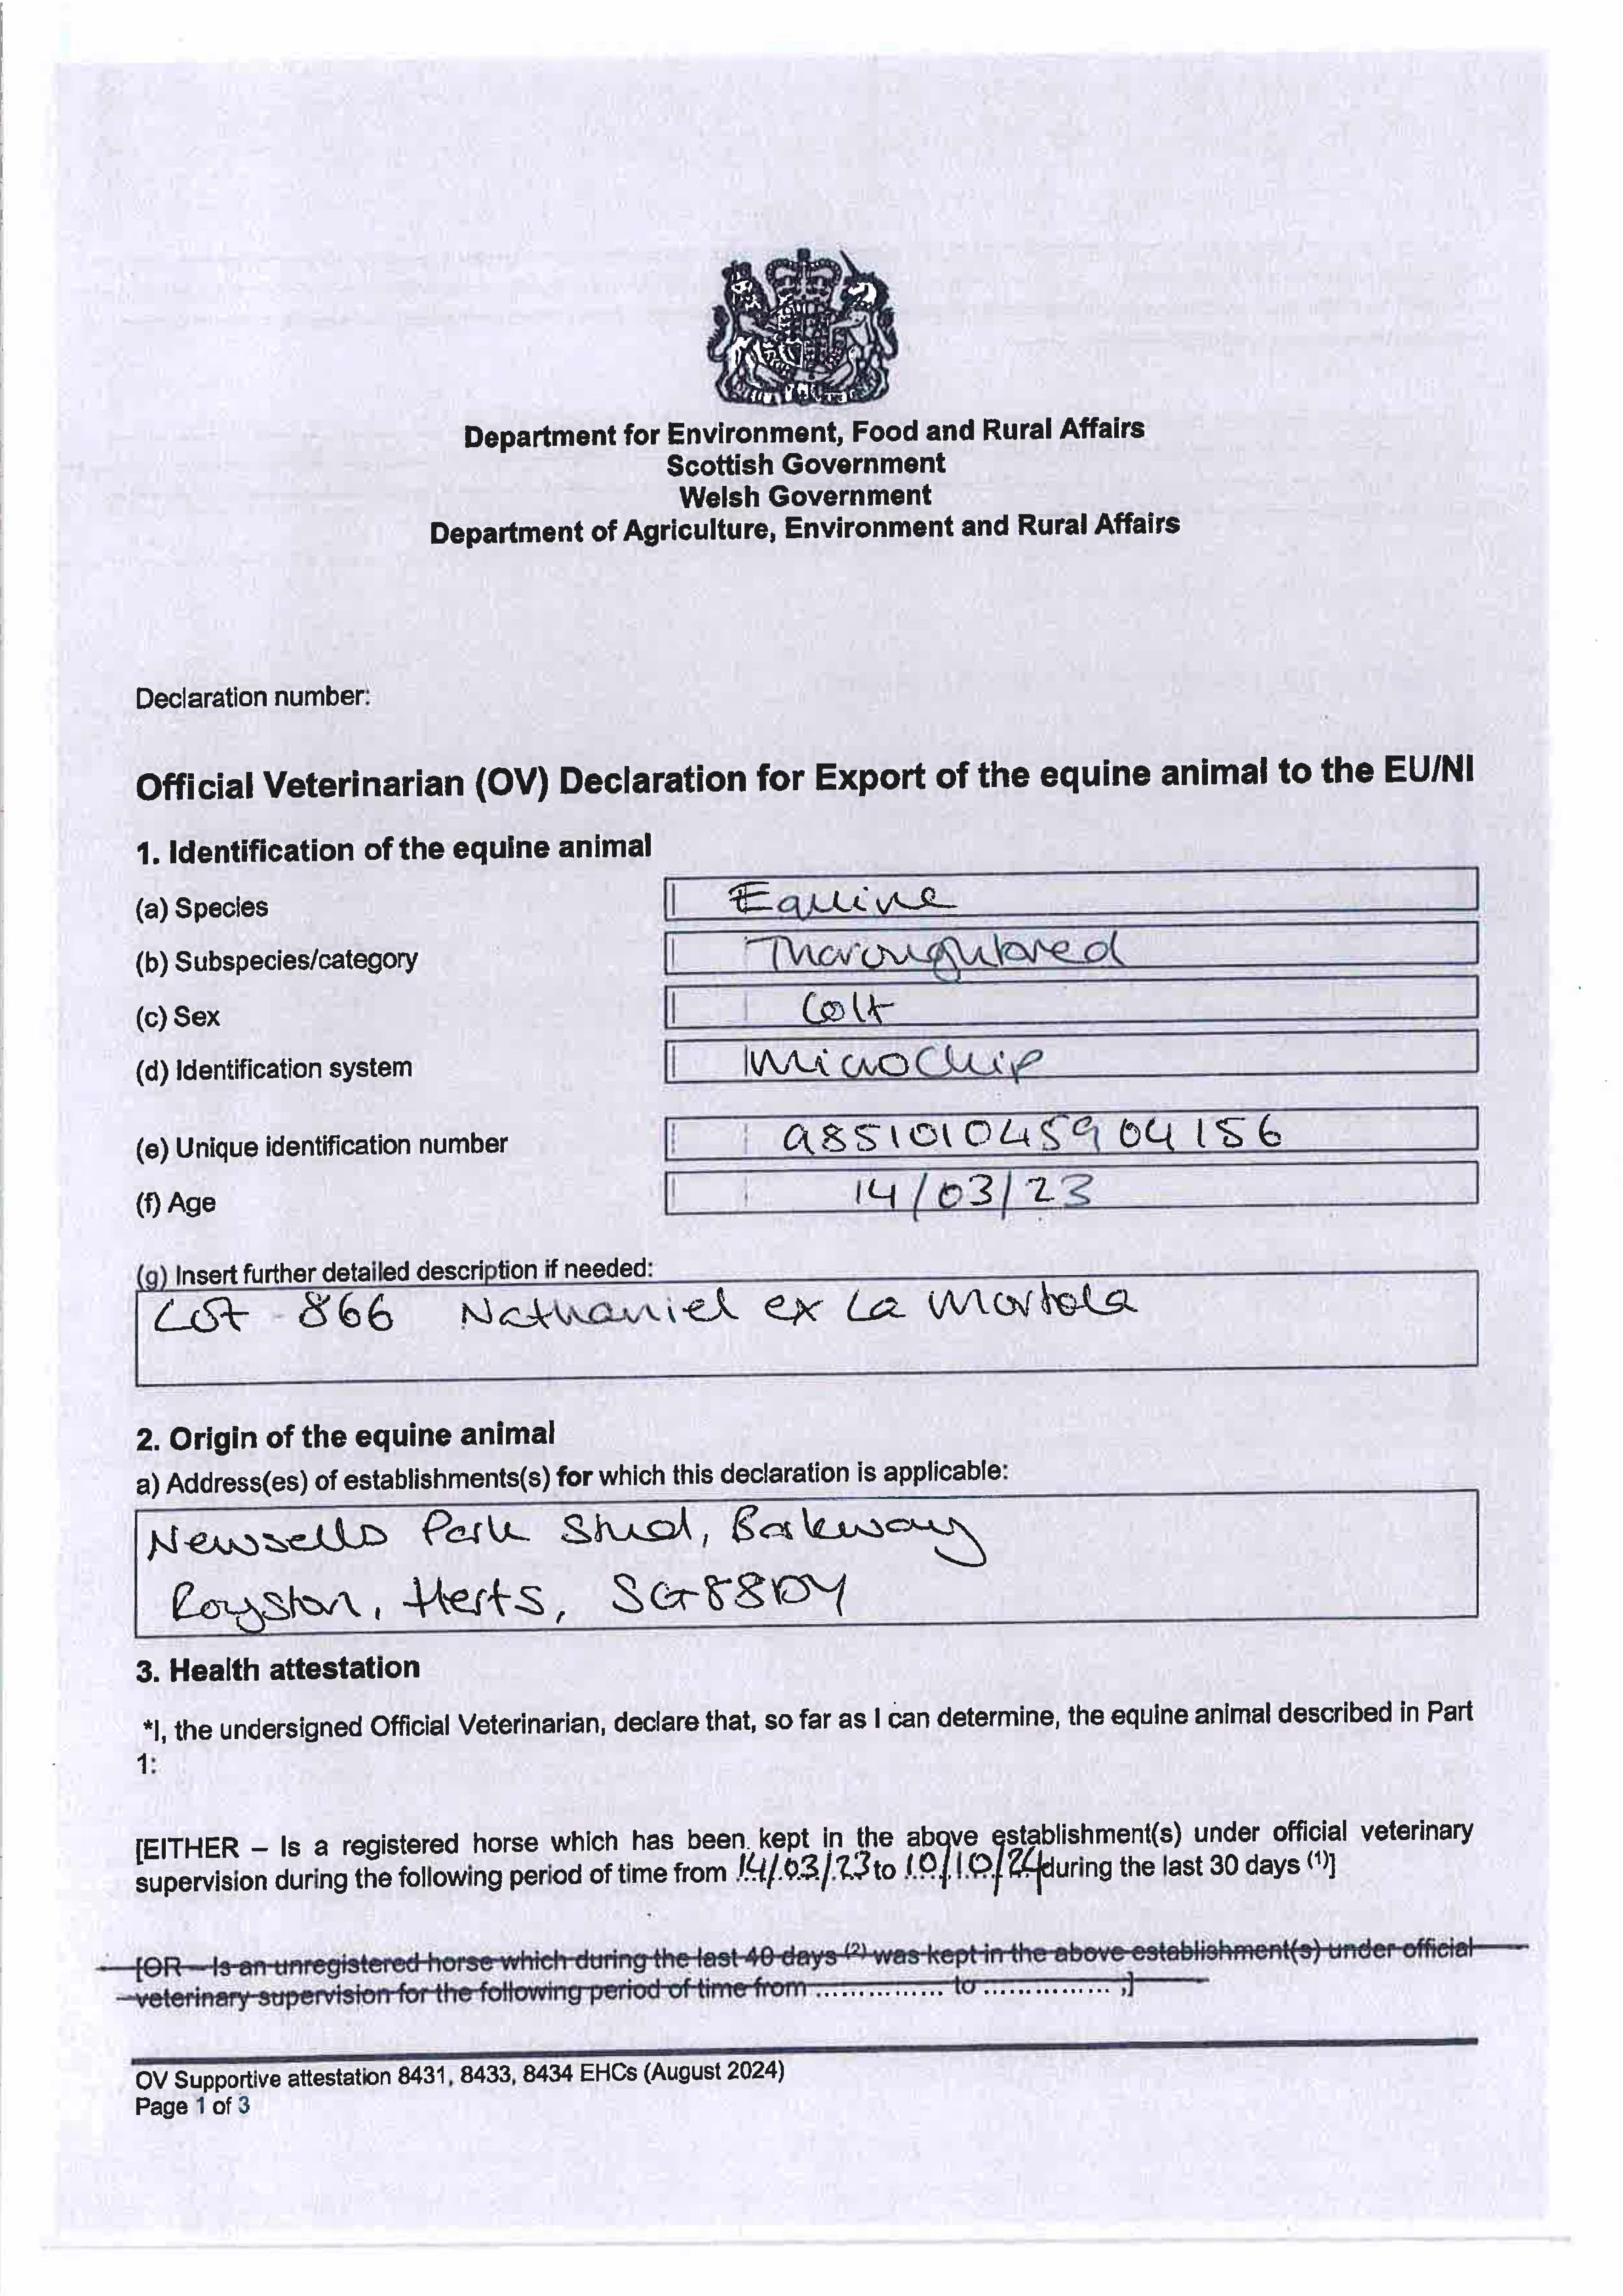 Department for Environment, Food and Rural Affairs
Scottish Government
Welsh Government
Department of Agriculture, Environment and Rural Affairs
Declaration number:
Official Veterinarian (OV) Declaration for Export of the equine animal to the EU/NI
1. Identification of the equine animal
(a) Species Equine
(b) Subspecies/category Thoroughbred
(c) Sex Colt
(d) Identification system Microchip
(e) Unique identification number 985101045904156
(f) Age 14/03/23
(g) Insert further detailed description if needed:
Lot 866 Nathaniel ex La Mortola
2. Origin of the equine animal
a) Address(es) of establishments(s) for which this declaration is applicable:
Newsells Park Stud, Barkway
Royston, Herts, SG88DY
3. Health attestation
*I, the undersigned Official Veterinarian, declare that, so far as I can determine, the equine animal described in Part
1:
[EITHER – Is a registered horse which has been kept in the above establishment(s) under official veterinary
supervision during the following period of time from 14/03/23 to 10/10/24 during the last 30 days (1)]
[OR – Is an unregistered horse which during the last 40 days (2) was kept in the above establishment(s) under official
veterinary supervision for the following period of time from ............... to ............... ,]
OV Supportive attestation 8431, 8433, 8434 EHCs (August 2024)
Page 1 of 3